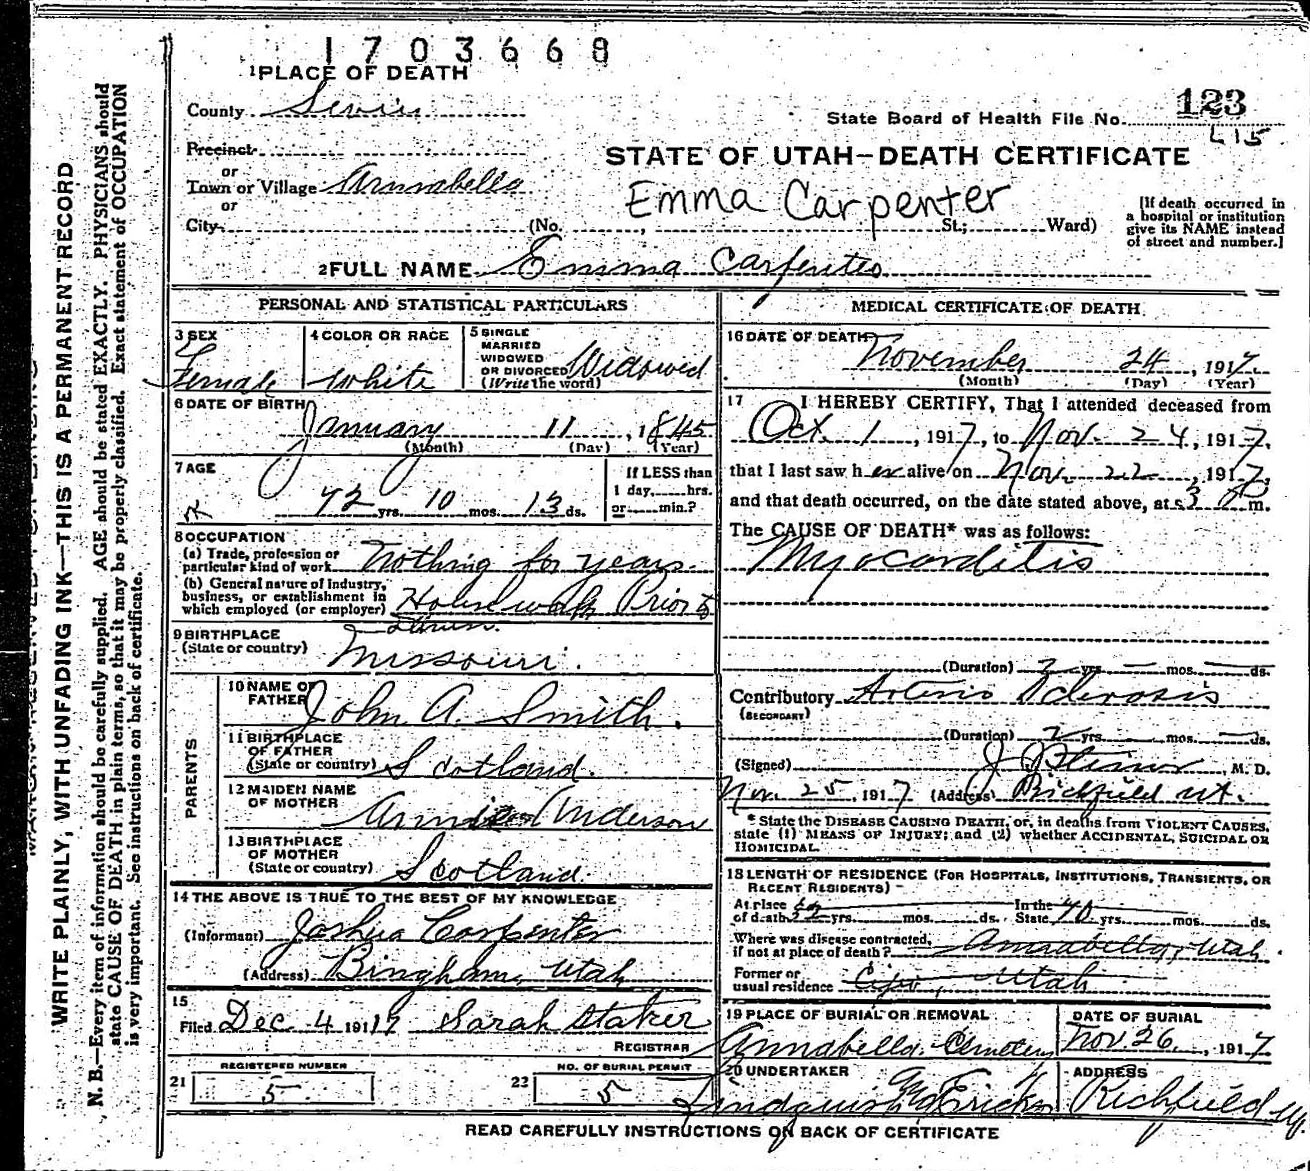 1703668
1 PLACE OF DEATH
County Sevier
State Board of Health File No. 123
415
Precinct
or
Town or Village Annabella
or
City
STATE OF UTAH—DEATH CERTIFICATE
Emma Carpenter
(No. , St.; Ward)
[If death occurred in
a hospital or institution
give its NAME instead
of street and number.]
2 FULL NAME Emma Carpenter
WRITE PLAINLY, WITH UNFADING INK—THIS IS A PERMANENT RECORD
N. B.—Every item of information should be carefully supplied. AGE should be stated EXACTLY. PHYSICIANS should
state CAUSE OF DEATH in plain terms, so that it may be properly classified. Exact statement of OCCUPATION
is very important. See instructions on back of certificate.
PERSONAL AND STATISTICAL PARTICULARS
3 SEX
Female
4 COLOR OR RACE
White
5 SINGLE
MARRIED
WIDOWED
OR DIVORCED Widowed
(Write the word)
6 DATE OF BIRTH
January 11, 1845
(Month) (Day) (Year)
7 AGE
72 yrs. 10 mos. 13 ds.
If LESS than
1 day, hrs.
or min.?
8 OCCUPATION
(a) Trade, profession or
particular kind of work Nothing for years.
(b) General nature of industry,
business, or establishment in
which employed (or employer) Housework Prior to
9 BIRTHPLACE
(State or country) Missouri.
PARENTS
10 NAME OF
FATHER John A. Smith.
11 BIRTHPLACE
OF FATHER
(State or country) Scotland.
12 MAIDEN NAME
OF MOTHER Anderson
13 BIRTHPLACE
OF MOTHER
(State or country) Scotland.
14 THE ABOVE IS TRUE TO THE BEST OF MY KNOWLEDGE
(Informant) Joshua Carpenter
(Address) Bingham, Utah
15
Filed Dec. 4 1917 Sarah Staker
REGISTRAR
REGISTERED NUMBER
21 5
NO. OF BURIAL PERMIT
22 5
MEDICAL CERTIFICATE OF DEATH
16 DATE OF DEATH
November 24, 1917.
(Month) (Day) (Year)
17 I HEREBY CERTIFY, That I attended deceased from
Oct. 1, 1917, to Nov. 24, 1917.
that I last saw her alive on Nov. 22, 1917
and that death occurred, on the date stated above, at 3 P m.
The CAUSE OF DEATH* was as follows:
Myocarditis
(Duration) 2 yrs. — mos. — ds.
Contributory Arterio Sclerosis
(SECONDARY)
(Duration) 2 yrs. — mos. — ds.
(Signed) M. D.
Nov. 25, 1917 (Address) Richfield Ut.
* State the DISEASE CAUSING DEATH, or, in deaths from VIOLENT CAUSES,
state (1) MEANS OF INJURY; and (2) whether ACCIDENTAL, SUICIDAL OR
HOMICIDAL.
18 LENGTH OF RESIDENCE (FOR HOSPITALS, INSTITUTIONS, TRANSIENTS, OR
RECENT RESIDENTS) –
At place In the
of death yrs. mos. ds. State 40 yrs. mos. ds.
Where was disease contracted,
if not at place of death? Annabella, Utah.
Former or
usual residence Utah
19 PLACE OF BURIAL OR REMOVAL
Annabella Cemetery
DATE OF BURIAL
Nov. 26, 1917.
20 UNDERTAKER
Lindquist
ADDRESS
Richfield Ut.
READ CAREFULLY INSTRUCTIONS ON BACK OF CERTIFICATE